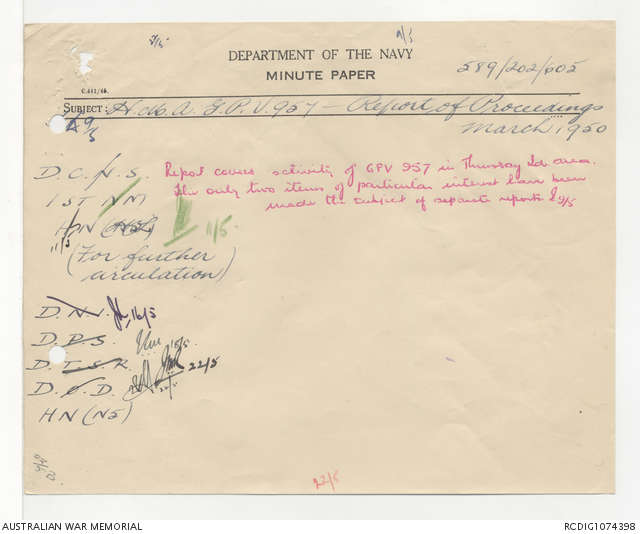 9/5
DEPARTMENT OF THE NAVY
MINUTE PAPER
589/202/605
C.442/48.
SUBJECT: H.M.A. G.P.V. 957 - Report of Proceedings
March 1950
9/5
D.C.N.S. Report covers activity of GPV 957 in Thursday Id. area.
1ST NM The only two items of particular interest have been
made the subject of separate reports 9/5
HN (NS) 11/5.
11/5
(For further
circulation)
D.N.I. 16/5
D.P.S. 18/5.
D.T.S.R. 22/5
D.O.D. 22/5
HN (NS)
22/5
AUSTRALIAN WAR MEMORIAL
RCDIG1074398